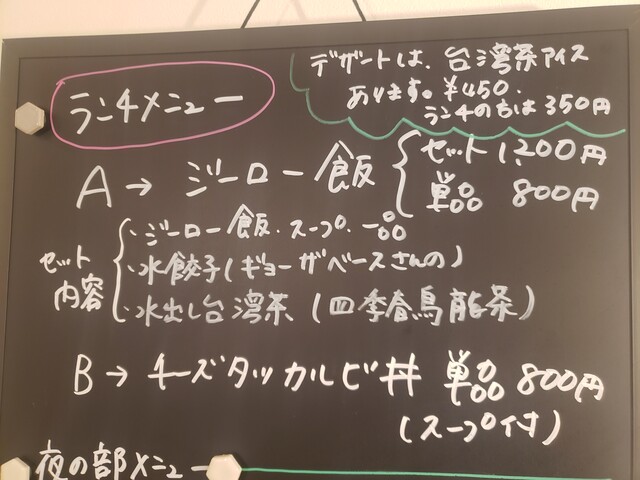 ランチメニュー
デザートは、台湾茶アイス
あります。¥450.
ランチの方は350円
A→ ジーロー飯
セット1,200円
単品 800円
セット内容
・ジーロー飯・スープ・一品
・水餃子(ギョーザベースさんの)
・水出し台湾茶(四季春烏龍茶)
B→ チーズタッカルビ丼 単品 800円
(スープ付)
夜の部メニュー